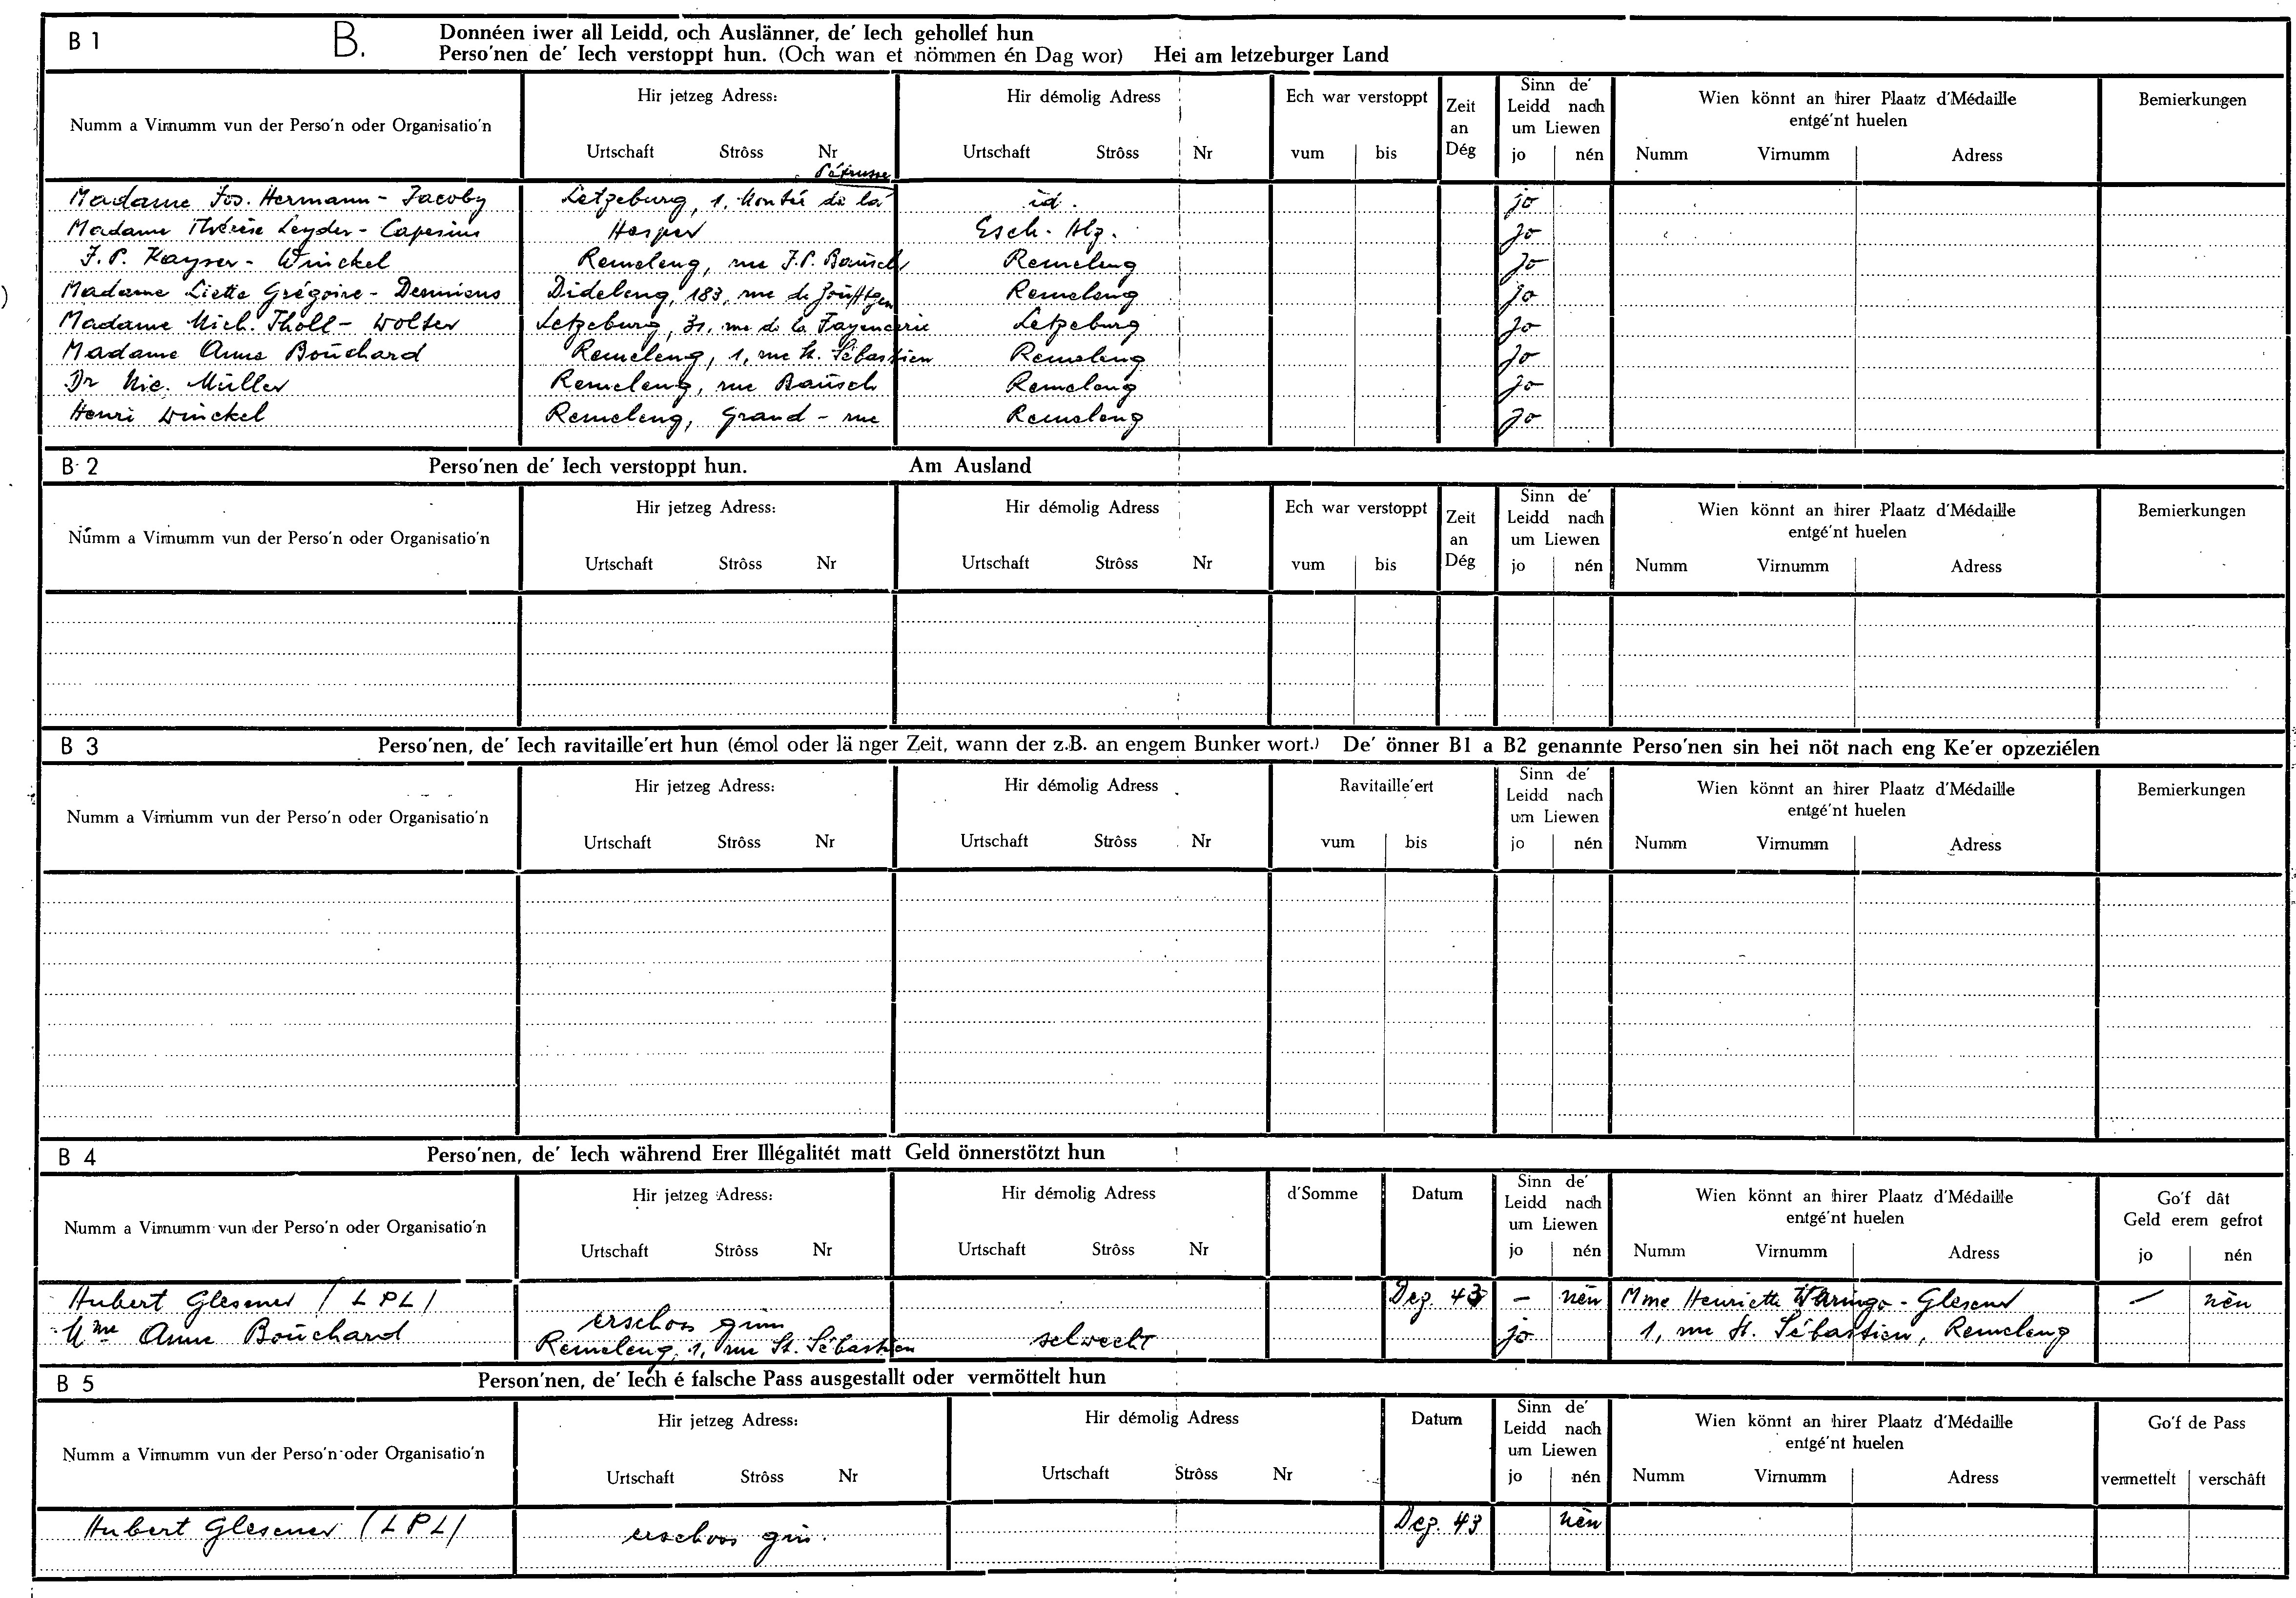 B 1 B. Donnéen iwer all Leidd, och Auslänner, de' Iech gehollef hun
Perso'nen de' Iech verstoppt hun. (Och wan et nömmen én Dag wor) Hei am letzeburger Land
Numm a Virnumm vun der Perso'n oder Organisatio'n
Hir jetzeg Adress:
Urtschaft Strôss Nr
Hir démolig Adress
Urtschaft Strôss Nr
Ech war verstoppt
vum bis
Zeit
an
Dég
Sinn de'
Leidd nach
um Liewen
jo nén
Wien könnt an hirer Plaatz d'Médaille
entgé'nt huelen
Numm Virnumm Adress
Bemierkungen
Pétrusse
Madame Jos. Hermann - Jacoby Letzeburg, 1, Montée de la id. jo
Madame Thérèse Leyder - Caperius Hesper Esch. Alz. jo
J. P. Kayser - Winckel Remeleng, rue J.P. Bausch Remeleng jo
Madame Liette Grégoire - Demiens Dideleng, 183, rue de Zoufftgen Remeleng jo
Madame Mich. Tholl - Wolter Letzeburg, 31, rue de la Fayencerie Letzeburg jo
Madame Anne Bouchard Remeleng, 1, rue St. Sébastien Remeleng jo
Dr Nic. Müller Remeleng, rue Bausch Remeleng jo
Henri Winckel Remeleng, Grand - rue Remeleng jo
B 2 Perso'nen de' Iech verstoppt hun. Am Ausland
Numm a Virnumm vun der Perso'n oder Organisatio'n
Hir jetzeg Adress:
Urtschaft Strôss Nr
Hir démolig Adress
Urtschaft Strôss Nr
Ech war verstoppt
vum bis
Zeit
an
Dég
Sinn de'
Leidd nach
um Liewen
jo nén
Wien könnt an hirer Plaatz d'Médaille
entgé'nt huelen
Numm Virnumm Adress
Bemierkungen
B 3 Perso'nen, de' Iech ravitaille'ert hun (émol oder länger Zeit, wann der z.B. an engem Bunker wort.) De' önner B1 a B2 genannte Perso'nen sin hei nöt nach eng Ke'er opzeziélen
Numm a Virnumm vun der Perso'n oder Organisatio'n
Hir jetzeg Adress:
Urtschaft Strôss Nr
Hir démolig Adress
Urtschaft Strôss Nr
Ravitaille'ert
vum bis
Sinn de'
Leidd nach
um Liewen
jo nén
Wien könnt an hirer Plaatz d'Médaille
entgé'nt huelen
Numm Virnumm Adress
Bemierkungen
B 4 Perso'nen, de' Iech während Erer Illégalitét matt Geld önnerstötzt hun
Numm a Virnumm vun der Perso'n oder Organisatio'n
Hir jetzeg Adress:
Urtschaft Strôss Nr
Hir démolig Adress
Urtschaft Strôss Nr
d'Somme
Datum
Sinn de'
Leidd nach
um Liewen
jo nén
Wien könnt an hirer Plaatz d'Médaille
entgé'nt huelen
Numm Virnumm Adress
Go'f dât
Geld erem gefrot
jo nén
Hubert Glesener (LPL) erschoss gin Dez. 43 - nén Mme Henriette Waringo - Glesener - nén
Mme Anne Bouchard Remeleng, 1, rue St. Sébastien selwecht jo 1, rue St. Sébastien, Remeleng
B 5 Person'nen, de' Iech é falsche Pass ausgestallt oder vermöttelt hun
Numm a Virnumm vun der Perso'n oder Organisatio'n
Hir jetzeg Adress:
Urtschaft Strôss Nr
Hir démolig Adress
Urtschaft Strôss Nr
Datum
Sinn de'
Leidd nach
um Liewen
jo nén
Wien könnt an hirer Plaatz d'Médaille
entgé'nt huelen
Numm Virnumm Adress
Go'f de Pass
vermettelt verschâft
Hubert Glesener (LPL) erschoss gin. Dez. 43 nén